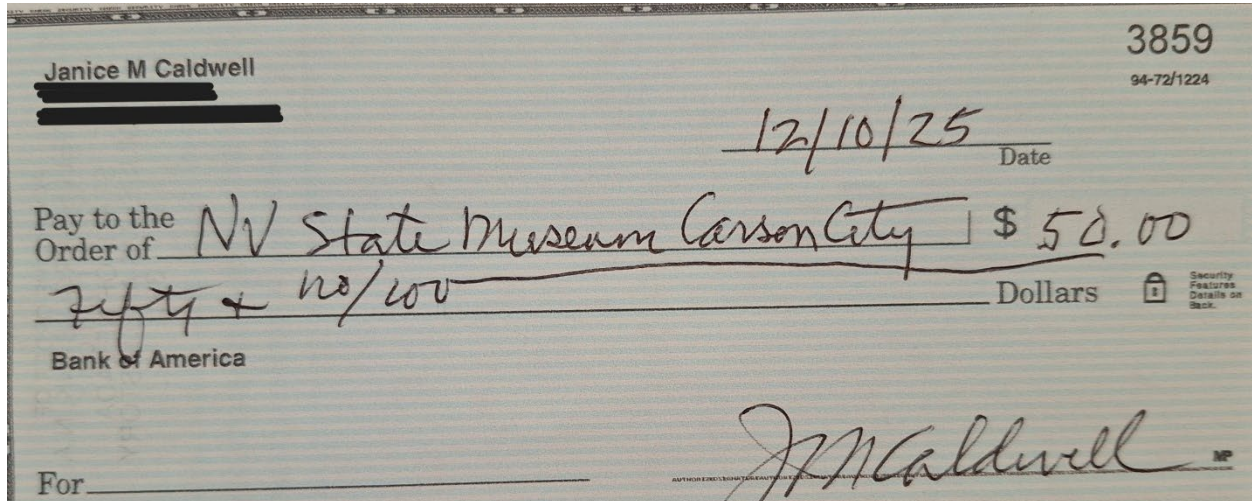 Janice M Caldwell
3859
94-72/1224
12/10/25
Date
Pay to the
Order of NV State Museum Carson City $ 50.00
Fifty + no/100 Dollars
Security
Features
Details on
Back.
Bank of America
JMCaldwell
MP
For